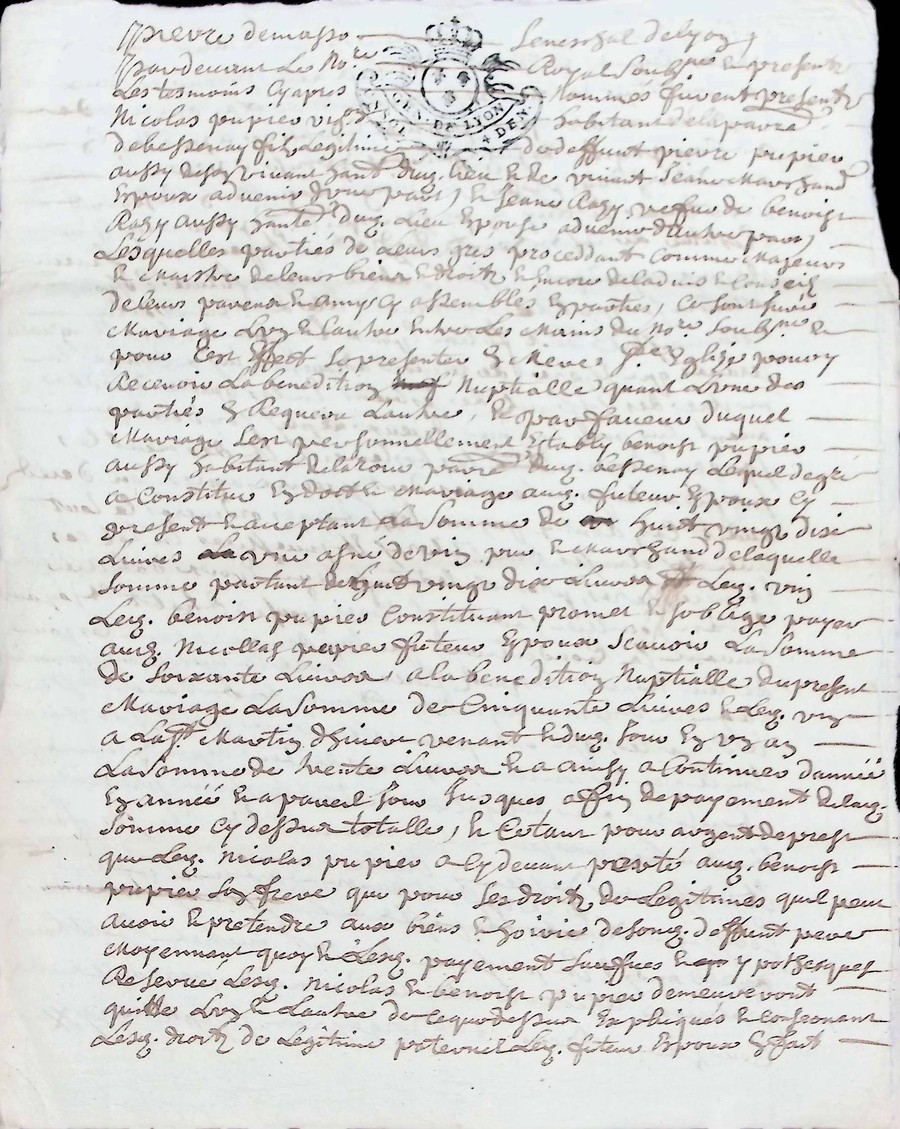 Pierre demasso Seneschal de lyon,
Pardevant Le No.re Royal Soubs.né Et presents
Les tesmoins Cyapres Nommes furent presents
GEN. DE LYON
Nicolas pupier habitant de la parro.
de bessenay fils Legitime de deffunt pierre pupier
aussy de son vivant hant. dud. Lieu et de vivant Jeanne Marchand
Espoux advenir d'une part, Et Jeanne Ragy vefve de benoist
Ragy aussy hante. dud. Lieu Epouse advenir d'autre part,
Lesquelles parties de Leurs gres proceddant Comme Majeurs
Et Maistre de leurs biens Et droits, Et Encore de ladvis Et Conseil
de leurs parens Et amys Cy assembles Ont promis
Mariage L'un Et Lautre Entre Les Mains du No.re Soubs.né Et
pour Cest Effect Se presenter En Mere s.te Eglise pour y
Recevoir La benedition Nuptialle quant L'une des
parties En Requera Lautre, Et par faveur duquel
Mariage sest personnellement Estably benoist pupier
aussy habitant de la parro. dud. bessenay Lequel de gré
a Constitue En dot Et Mariage aud. futeur Espoux Cy
present Et acceptant La Somme de huict vingt dix
Livres Une asné de vin pur Et Marchand de laquelle
Somme partant de huict vingt dix Livres Et Led. vin
Led. benoist pupier Constituant promet Et soblige payer
aud. Nicollas pupier futeur Espoux Scavoir La Somme
de Soixante Livres a la benedition Nuptialle du present
Mariage La Somme de Cinquante Livres Et Led. vin
a La S.t Martin d'hiver venant Et dud. Jour En Un an
La Somme de trente Livres Et a ainsy a Continuer d'année
En année Et a pareil Jour Jusques a fin de payement de lad.
Somme Cy dessus totalle, Et Ce tant pour argent de prest
que Led. Nicolas pupier a Cy devant presté aud. benoist
pupier Son frere que pour Ses droits de Legitimes quil peut
avoir Et pretendre aux biens Et hoirie de Sond. deffunt pere
Moyennant quoy Et Lesd. payement Sauffues Et ypothesques
Reservé Lesd. Nicolas Et benoist pupier demeureront
quitte L'un Et Lautre de Ce que dessus Expliques Et Consernant
Lesd. droits de Legitime paternel Led. futeur Espoux En fait